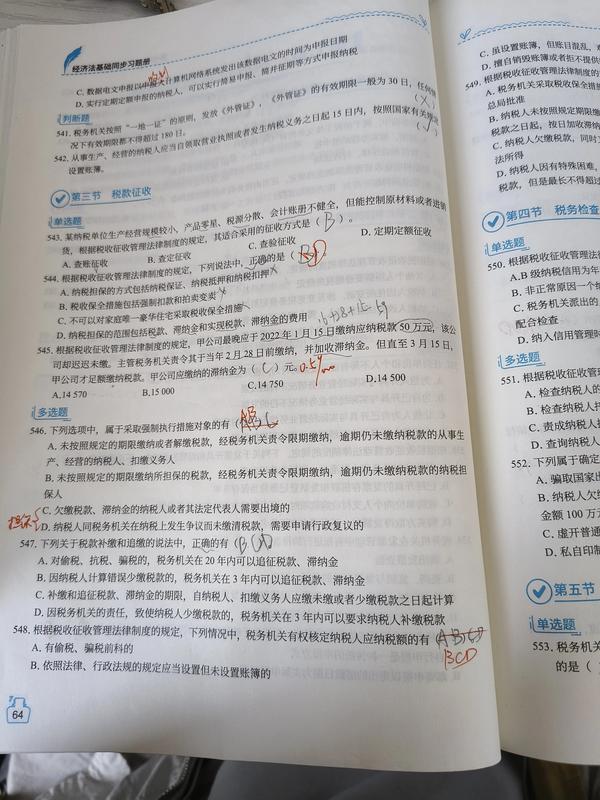 经济法基础同步习题册
C. 数据电文申报以申报人计算机网络系统发出该数据电文的时间为申报日期
D. 实行定期定额申报的纳税人，可以实行简易申报、简并征期等方式申报纳税
判断题
541. 税务机关按照“一地一证”的原则，发放《外管证》，《外管证》的有效期限一般为 30 日，任何情
况下有效期限都不得超过 180 日。 (×)
542. 从事生产、经营的纳税人应当自领取营业执照或者发生纳税义务之日起 15 日内，按照国家有关规定
设置账簿。 (√)
第三节 税款征收
单选题
543. 某纳税单位生产经营规模较小，产品零星、税源分散、会计账册不健全，但能控制原材料或者进销
货，根据税收征收管理法律制度的规定，其适合采用的征收方式是（B）。
A. 查账征收 B. 查定征收 C. 查验征收 D. 定期定额征收
544. 根据税收征收管理法律制度的规定，下列说法中，正确的是（ D
A. 纳税担保的方式包括纳税保证、纳税抵押和纳税扣押×
B. 税收保全措施包括强制扣款和拍卖变卖×
C. 不可以对家庭唯一豪华住宅采取税收保全措施
D. 纳税担保的范围包括税款、滞纳金和实现税款、滞纳金的费用
545. 根据税收征收管理法律制度的规定，甲公司最晚应于 2022 年 1 月 15 日缴纳应纳税款 50 万元，该公
司却迟迟未缴。主管税务机关责令其于当年 2 月 28 日前缴纳，并加收滞纳金。但直至 3 月 15 日，
甲公司才足额缴纳税款，甲公司应缴纳的滞纳金为（C）元。
A.14 570 B.15 000 C.14 750 D.14 500
多选题
546. 下列选项中，属于采取强制执行措施对象的有（ AB
A. 未按照规定的期限缴纳或者解缴税款，经税务机关责令限期缴纳，逾期仍未缴纳税款的从事生
产、经营的纳税人、扣缴义务人
B. 未按照规定的期限缴纳所担保的税款，经税务机关责令限期缴纳，逾期仍未缴纳税款的纳税担
保人
C. 欠缴税款、滞纳金的纳税人或者其法定代表人需要出境的
D. 纳税人同税务机关在纳税上发生争议而未缴清税款，需要申请行政复议的
547. 下列关于税款补缴和追缴的说法中，正确的有（BCD）
A. 对偷税、抗税、骗税的，税务机关在 20 年内可以追征税款、滞纳金
B. 因纳税人计算错误少缴税款的，税务机关在 3 年内可以追征税款、滞纳金
C. 补缴和追征税款、滞纳金的期限，自纳税人、扣缴义务人应缴未缴或者少缴税款之日起计算
D. 因税务机关的责任，致使纳税人少缴税款的，税务机关在 3 年内可以要求纳税人补缴税款
548. 根据税收征收管理法律制度的规定，下列情况中，税务机关有权核定纳税人应纳税额的有（ABCD
BCD
A. 有偷税、骗税前科的
B. 依照法律、行政法规的规定应当设置但未设置账簿的
64
C. 虽设置账簿，但账目混乱，
D. 擅自销毁账簿或者拒不提供
549. 根据税收征收管理法律制度的
A. 税务机关采取税收保全措施
总局批准
B. 纳税人未按照规定期限缴
税款之日起，按日加收滞纳
C. 纳税人欠缴税款，同时
法所得
D. 纳税人因有特殊困难，
税款，但是最长不得超过
第四节 税务检查
单选题
550. 根据税收征收管理法律
A.B 级纳税信用为年
B. 非正常原因一个
C. 税务机关派出的
配合检查
D. 纳入信用管理时
多选题
551. 根据税收征收管
A. 检查纳税人的
B. 检查纳税人
C. 责成纳税人
D. 查询纳税人
552. 下列属于确定
A. 骗取国家出
B. 纳税人欠缴
金额 100 万
C. 虚开普通
D. 私自印制
第五节
单选题
553. 税务机关
的是（